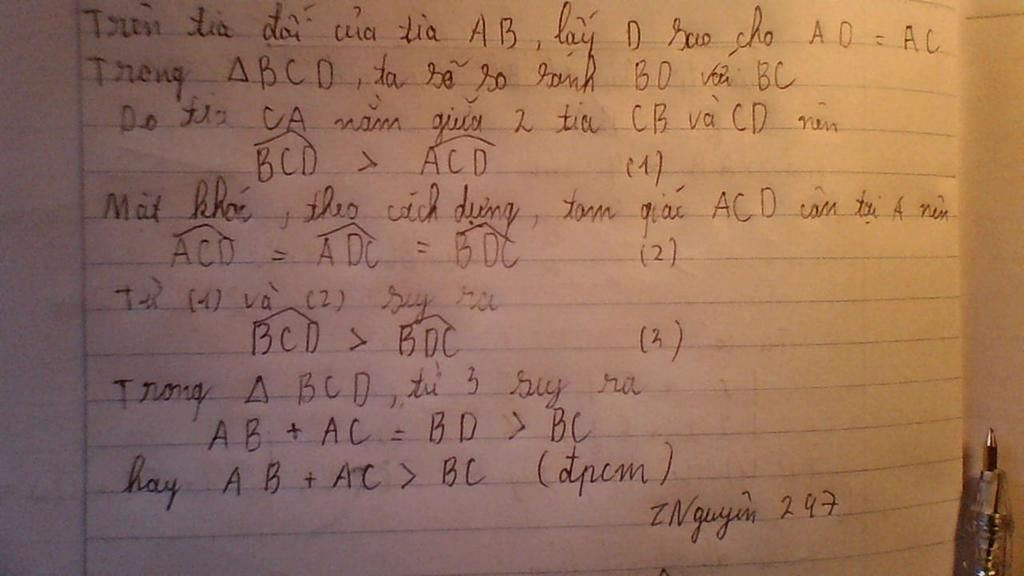 Trên tia đối của tia AB, lấy D sao cho AD = AC
Trong ΔBCD, ta sẽ so sánh BD với BC
Do tia CA nằm giữa 2 tia CB và CD nên
BCD > ACD (1)
Mặt khác, theo cách dựng, tam giác ACD cân tại A nên
ACD = ADC = BDC (2)
Từ (1) và (2) suy ra
BCD > BDC (3)
Trong Δ BCD, từ 3 suy ra
AB + AC = BD > BC
hay AB + AC > BC (đpcm)
INguyên 297